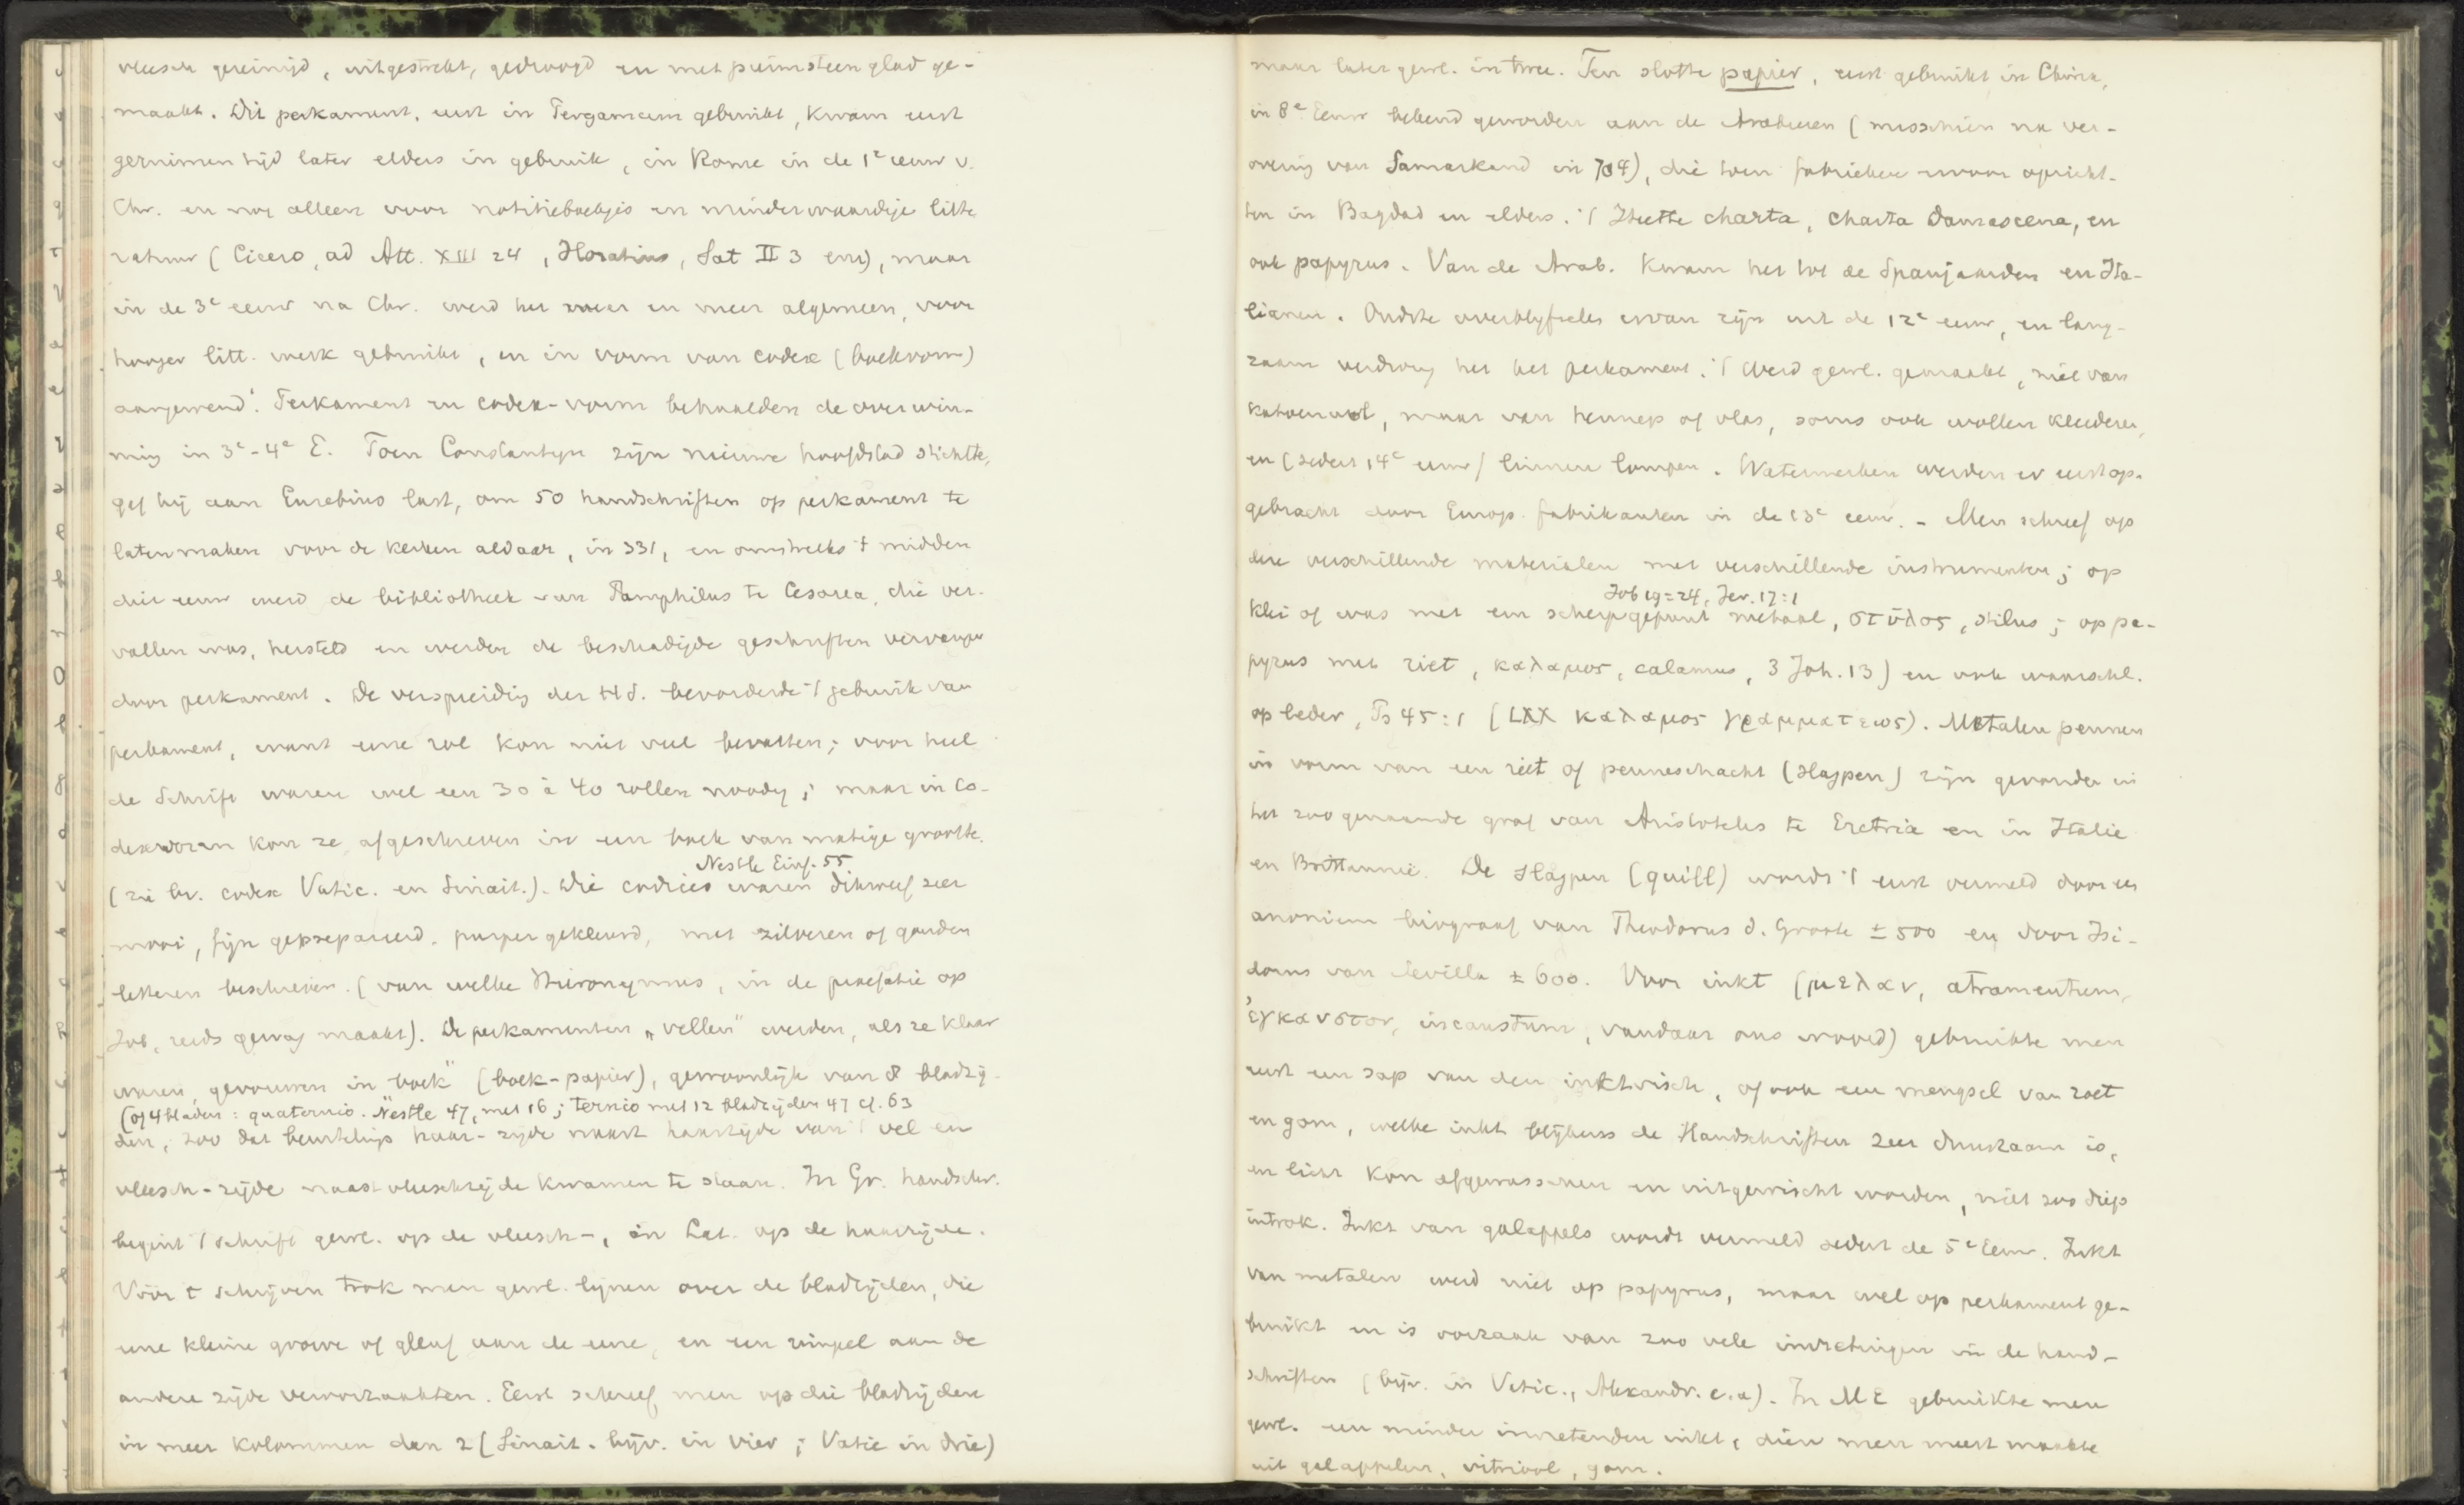 vleesch gereinigd, uitgestrekt, gedroogd en met puimsteen glad ge-
maakt. Dit perkament, eerst in Pergamum gebruikt, kwam eerst
geruimen tijd later elders in gebruik, in Rome in de 1e eeuw v.
Chr. en nog alleen voor notitieboekjes en minderwaardige litte
ratuur (Cicero, ad Att. XIII 24, Horatius, Sat II 3 enz), maar
in de 3e eeuw na Chr. werd het meer en meer algemeen, voor
hooger litt. werk gebruikt, en in vorm van codex (boekvorm)
aangewend. Perkament en codex-vorm behaalden de overwin-
ning in 3e-4e E. Toen Constantijn zijn nieuwe hoofdstad stichtte,
gaf hij aan Eusebius last, om 50 handschriften op perkament te
laten maken voor de kerken aldaar, in 331, en omstreeks 't midden
dier eeuw werd de bibliotheek van Pamphilus te Cesarea, die ver-
vallen was, hersteld en werden de beschadigde geschriften vervangen
door perkament. De verspreiding der H.S. bevorderde 't gebruik van
perkament, want eene rol kon niet veel bevatten; voor heel
de Schrift waren wel een 30 à 40 rollen noodig; maar in co-
dexvorm kon ze afgeschreven in een boek van matige grootte.
Nestle Einf. 55
(zie bv. codex Vatic. en Sinait.). Die codices waren dikwerf zeer
mooi, fijn geprepareerd, purper gekleurd, met zilveren of gouden
letteren beschreven. (van welke Hieronymus, in de praefatie op
Job, reeds gewag maakt). De perkamenten „vellen" werden, als ze klaar
waren, gevouwen in "boek" (boek-papier), gewoonlijk van 8 bladzij-
(of 4 bladen: quaternio. Nestle 47, met 16; ternio met 12 bladzijden 47 cf. 63
den, zoo dat beurtelings haar-zijde naast haarzijde van 't vel en
vleesch-zijde naast vleeschzijde kwamen te staan. In Gr. handschr.
begint 't schrift gewl. op de vleesch-, in Lat. op de haarzijde.
Vóór 't schrijven trok men gewl. lijnen over de bladzijden, die
eene kleine groeve of gleuf aan de eene, en een rimpel aan de
andere zijde veroorzaakten. Eerst schreef men op die bladzijden
in meer kolommen dan 2 (Sinait. bijv. in vier; Vatic in drie)
maar later gewl. in twee. Ten slotte papier, eerst gebruikt in China,
in 8e Eeuw bekend geworden aan de Arabieren (misschien na ver-
overing van Samarkand in 704), die toen fabrieken ervan opricht-
ten in Bagdad en elders. 't Heette charta, charta damascena, en
ook papyrus. Van de Arab. kwam het tot de Spanjaarden en Ita-
lianen. Oudste overblijfselen ervan zijn uit de 12e eeuw, en lang-
zaam verdrong het het perkament. 't Werd gewl. gemaakt, niet van
katoenwol, maar van hennep of vlas, soms ook wollen kleederen,
en (sedert 14e eeuw) linnen lompen. Watermerken werden er eerst op-
gebracht door Europ. fabrikanten in de 13e eeuw. - Men schreef op
deze verschillende materialen met verschillende instrumenten; op
Job 19=24, Jer. 17:1
klei of was met een scherpgepunt metaal, στῦλος, stilus; op pa-
pyrus met riet, καλαμος, calamus, 3 Joh. 13) en ook waarschl.
op leder, Ps 45:1 (LXX καλαμος γραμματεως). Metalen pennen
in vorm van een riet of penneschacht (slagpen) zijn gevonden in
het zoogenaamde graf van Aristoteles te Eretria en in Italie
en Brittannië. De slagpen (quill) wordt 't eerst vermeld door een
anoniem biograaf van Theodorus d. Groote ± 500 en door Isi-
dorus van Sevilla ± 600. Voor inkt (μελαν, atramentum,
ἐγκαυστον, incaustum, vandaar ons woord) gebruikte men
eerst een sap van den inktvisch, of ook een mengsel van roet
en gom, welke inkt blijkens de Handschriften zeer duurzaam is,
en licht kon afgewasschen en uitgewischt worden, niet zoo diep
introk. Inkt van galappels wordt vermeld sedert de 5e Eeuw. Inkt
van metalen werd niet op papyrus, maar wel op perkament ge-
bruikt en is oorzaak van zoo vele invretingen in de hand-
schriften (bijv. in Vatic., Alexandr. e.a). In ME gebruikte men
gewl. een minder invretenden inkt, dien men meest maakte
uit galappelen, vitriool, gom.